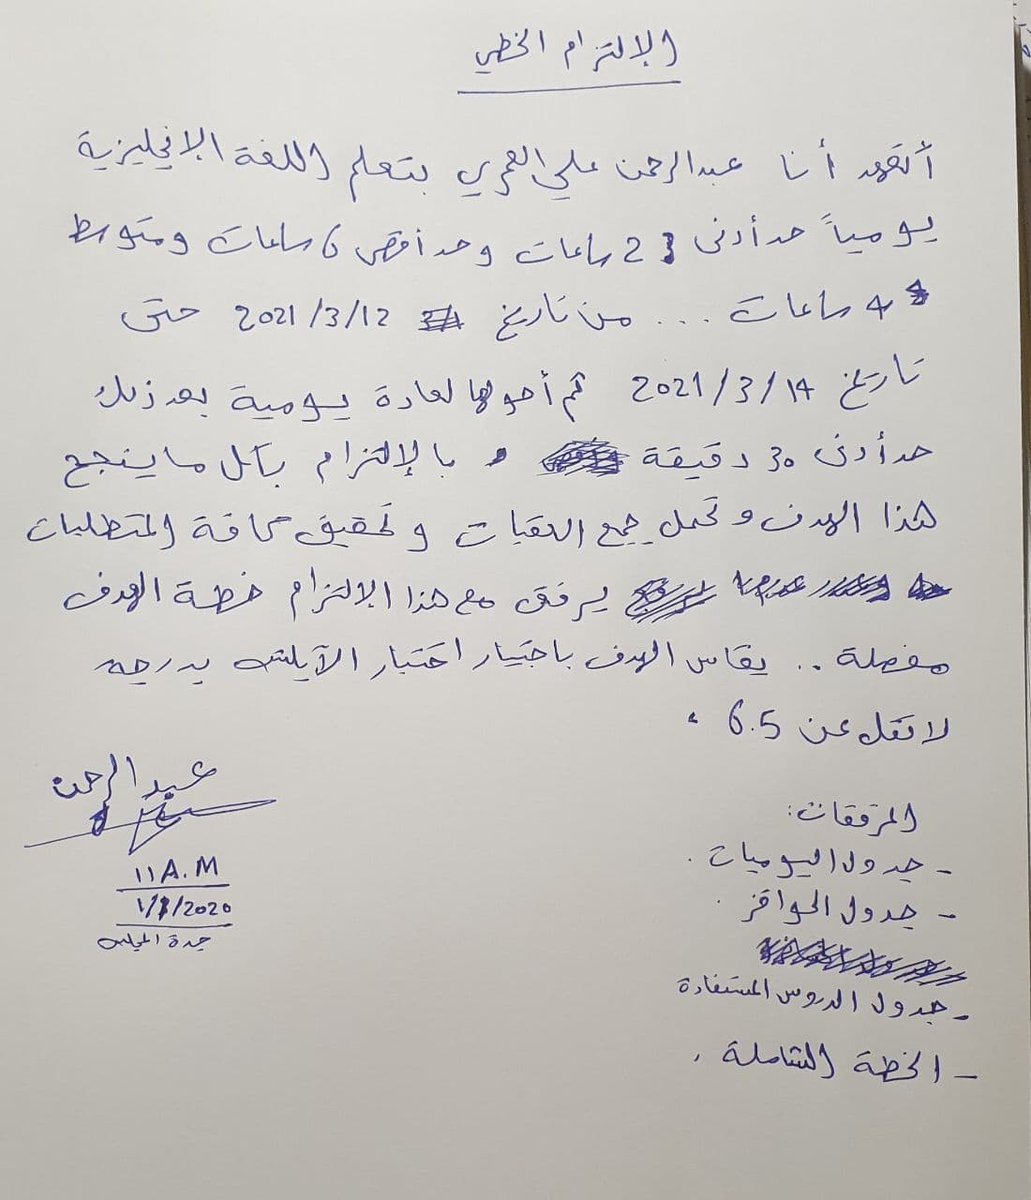 الإلتزام الخطي
أتعهد أنا عبدالرحمن علي العمري بتعلم اللغة الإنجليزية
يومياً حد أدنى 2 ساعات وحد أقصى 6 ساعات ومتوسط
4 ساعات ... من تاريخ 2021/3/12 حتى
تاريخ 2021/3/14 ثم أحولها لعادة يومية بعد ذلك
حد أدنى 30 دقيقة و بالإلتزام بكل ما ينجح
هذا الهدف وتحمل جميع العقبات وتحقيق كافة المتطلبات
يرفق مع هذا الإلتزام خطة الهدف
مفصلة .. يقاس الهدف باجتياز اختبار الآيلتس بدرجة
لا تقل عن 6.5
عبدالرحمن
11 A.M
1/1/2020
جدة المجلس
المرفقات:
- جدول اليوميات .
- جدول الحوافز .
- جدول الدروس المستفادة
- الخطة الشاملة .